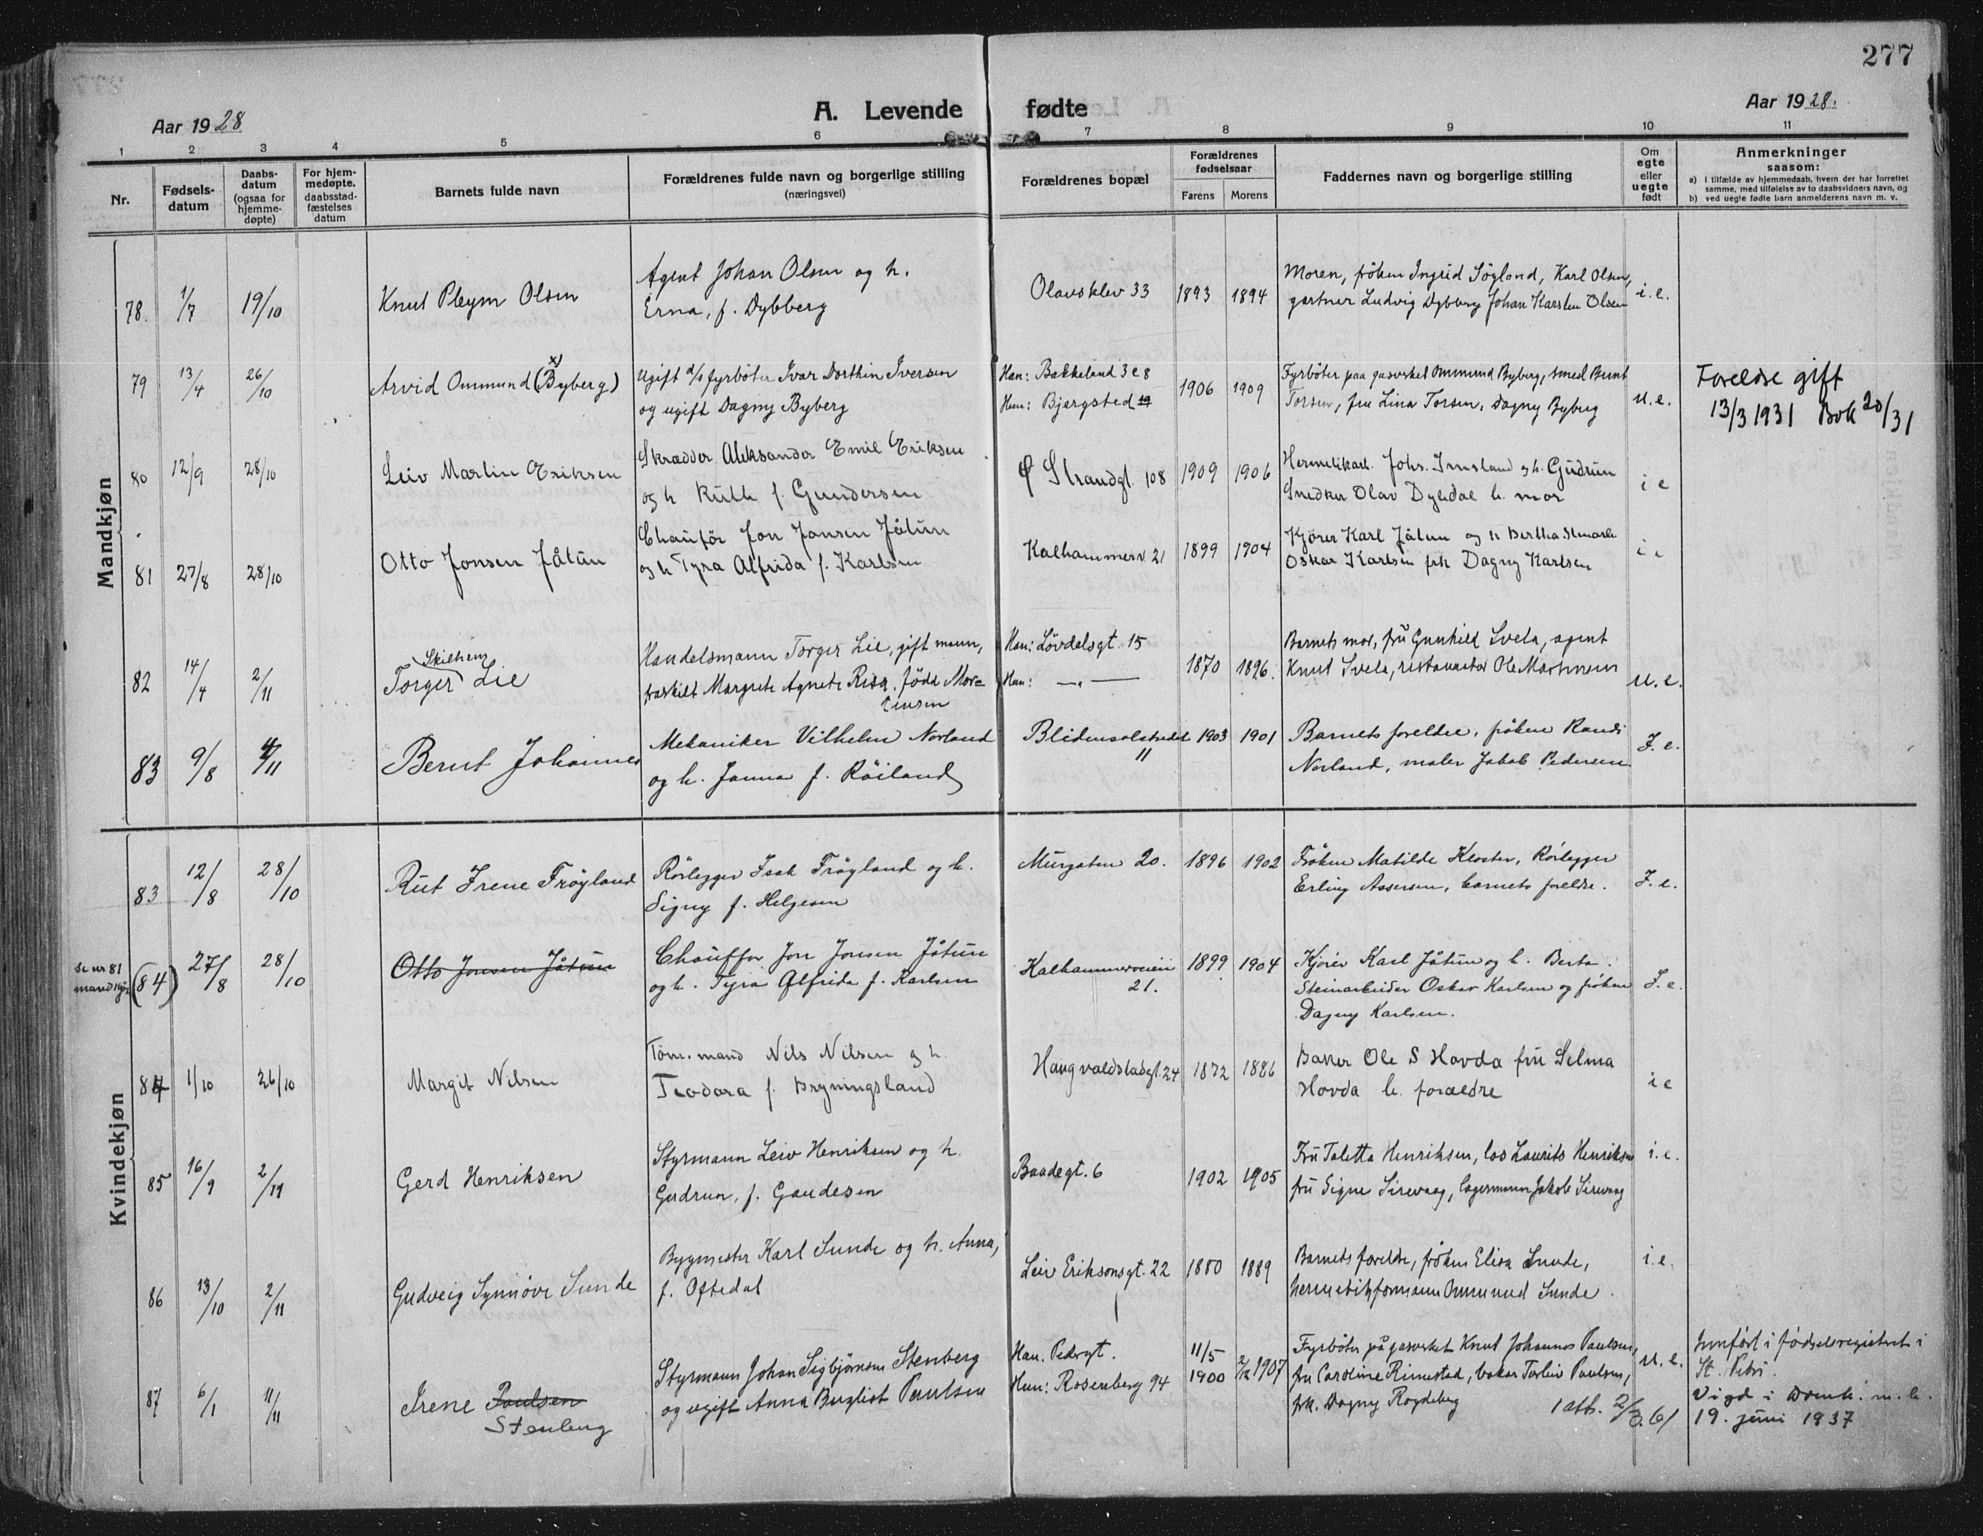 277
Aar 1928
A. Levende fødte
Aar 1928.
1 2 3 4 5 6 7 8 9 10 11
Nr.
Fødsels-
datum
Daabs-
datum
(ogsaa for
hjemme-
døpte)
For hjem-
medøpte.
daabsstad-
fæstelses
datum
Barnets fulde navn
Forældrenes fulde navn og borgerlige stilling
(næringsvei)
Forældrenes bopæl
Forældrenes
fødselsaar
Farens Morens
Faddernes navn og borgerlige stilling
Om
egte
eller
uegte
født
Anmerkninger
saasom:
a) I tilfælde av hjemmedaab, hvem der har forrettet
samme, med tilføielse av to daabsvidners navn, og
b) ved uegte fødte barn anmelderens navn m. v.
Mandkjøn
78. 1/7 19/10 Knut Pleym Olsen
Agent Johan Olsen og h.
Erna, f. Dybberg
Olavsklev 33 1893 1894
Moren, frøken Ingrid Søyland, Karl Olsen,
gartner Ludvig Dyberg Johan Karsten Olsen
i. e.
79 13/4 26/10 Arvid Ommund (Byberg) x)
Ugift d/s fyrbøter Ivar Dorthin Iversen
og ugift Dagny Byberg
Han: Bakkeland 3 e 8
Hun: Bjergsted 19
1906 1909
Fyrbøter paa gasverket Ommund Byberg, smed Bernt
Torsen, fru Lina Torsen, Dagny Byberg
u. e.
Foreldre gift
13/3 1931 Bok 20/31
80 12/9 28/10 Leiv Martin Eriksen
Skrædder Aleksander Emil Eriksen
og h Ruth f. Gundersen
Ø Strandgt. 108 1909 1906
Hermetikarb. Johs. Imsland og h. Gudrun
Snedker Olav Dybdal b. mor
i e
81 27/8 28/10 Otto Jonsen Jåtun
Chaufør Jon Jonsen Jåtun
og h Tyra Alfrida f. Karlsen
Kalhammerv 21 1899 1904
Kjører Karl Jåtun og h Bertha Stenarb
Oskar Karlsen frk Dagny Karlsen
i e
82 14/4 2/11 Torger Skilhem Lie
Handelsmann Torger Lie, gift mann,
fraskilt Margrete Agnete Risa, født Mor=
tensen
Han: Løvdalsgt. 15
Hun: —„—
1870 1896.
Barnets mor, fru Gunhild Svela, agent
Knut Svela, restauratør Ole Martinsen
u. e.
83 9/8 4/11 Bernt Johannes
Mekaniker Vilhelm Norland
og h. Janna f. Røiland
Blidensolstredet
11
1903 1901
Barnets foreldre, frøken Randi
Norland, maler Jakob Pedersen
I. e.
Kvindekjøn
83 12/8 28/10 Rut Irene Frøyland
Rørlegger Isak Frøyland og h.
Signy f. Helgesen
Murgaten 20. 1896 1902
Frøken Matilde Kloster, Rørlegger
Erling Assersen, barnets foreldre.
I. e.
Se nr 81
mandkjøn
(84) 27/8 28/10 Otto Jonsen Jåtun
Chauffør Jon Jonsen Jåtun
og h. Tyra Alfrida f. Karlsen
Kalhammerveien
21.
1899 1904
Kjører Karl Jåtun og h. Berta.
Steinarbeider Oskar Karlsen og frøken
Dagny Karlsen.
I. e.
84 1/10 26/10 Margit Nilsen
Tøm. mand Nils Nilsen og h.
Teodora f. Bryningsland
Haugvaldstadgt 24 1872 1886
Baker Ole S Hovda fru Selma
Hovda b. forældre
i e
85 16/9 2/11 Gerd Henriksen
Styrmann Leiv Henriksen og h.
Gudrun, f. Gaudesen
Baadegt. 6 1902 1905
Fru Taletta Henriksen, los Laurits Henriksen
fru Signe Sirevaag, lagermann Jakob Sirevaag
i. e.
86 13/10 2/11 Gudveig Synnøve Sunde
Bygmester Karl Sunde og h. Anna,
f. Oftedal
Leiv Eriksonsgt. 22 1880 1889
Barnets foreldre, frøken Elisa Sunde,
hermetikformann Ommund Sunde.
i. e.
87 6/1 11/11 Irene Paulsen
Stenberg
Styrmann Johan Sigbjørnsen Stenberg
og ugift Anna Burglist Paulsen
Han. Pedersgt.
Hun: Rosenberg 94
11/5
1900
2/2 1907
Fyrbøter på gasverket Knut Johannes Paulsen,
fru Caroline Rimestad, baker Torleiv Paulsen,
frk. Dagny Rogdeberg
1 att. 2/3. 61
u. e.
Innført i fødselsregistret i
St. Petri.
Vigd i Domk. m. h.
19. juni 1937